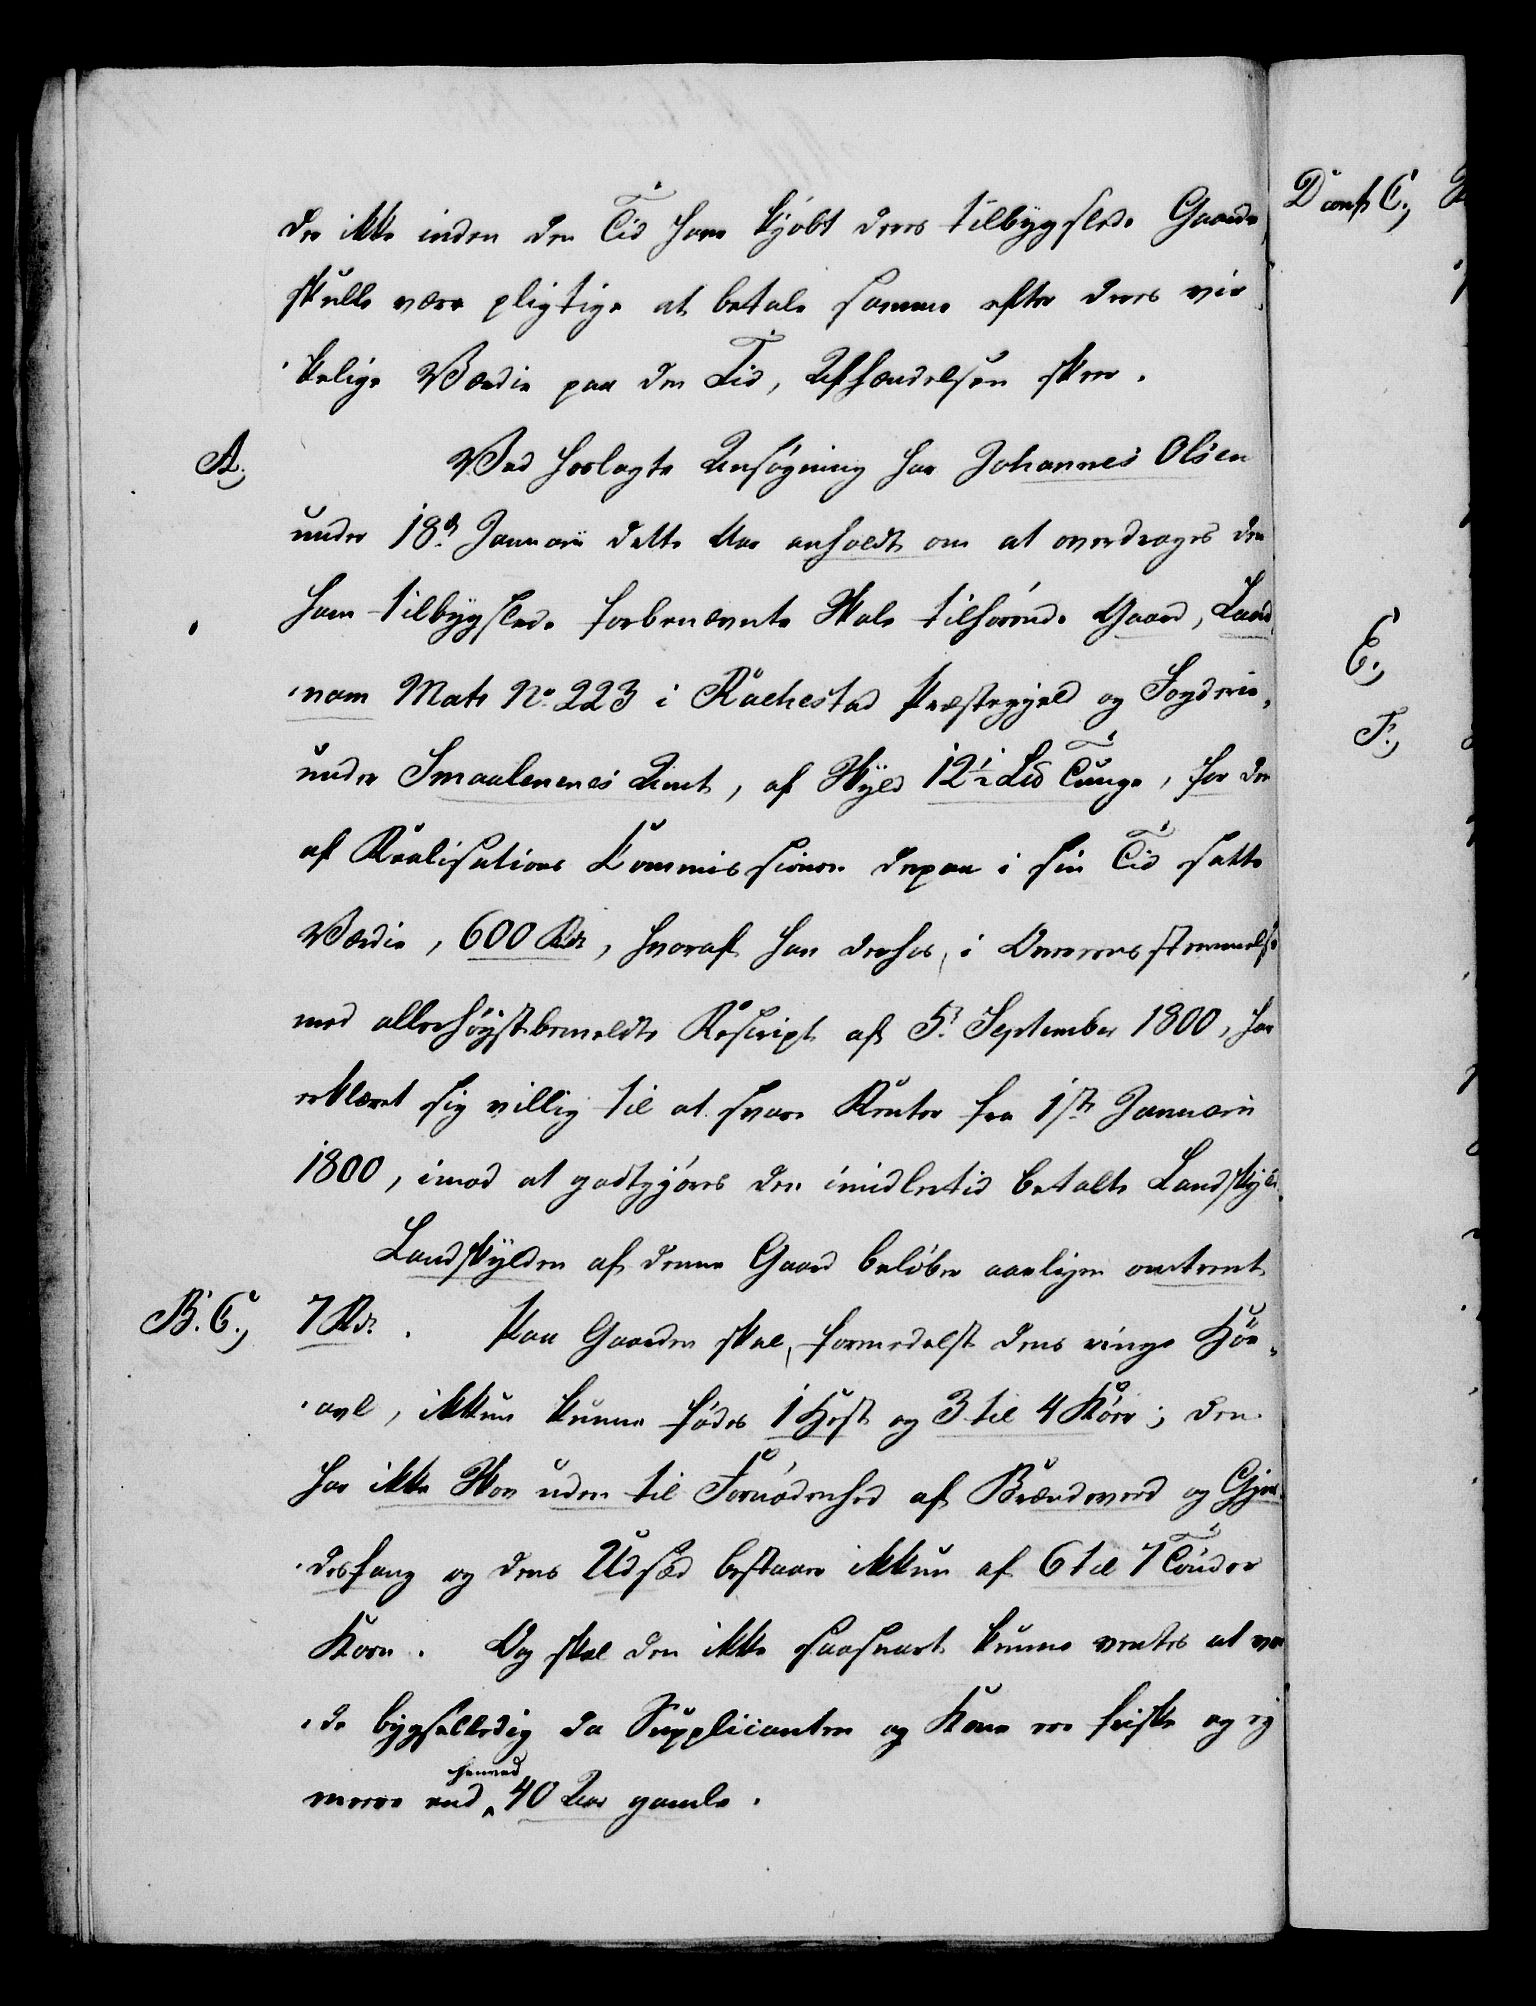 der ikke inden den Tid have kjöbt deres tilbygslede Gaarde,
skulle være pligtige at betale samme efter deres vir-
kelige Værdie paa den Tid, Afhændelsen skeer.
A.) Ved hoslagte Ansøgning har Johannes Olsen
under 18de Januarii dette Aar anholdt om at overdrages den
ham tilbygslede forbenævnte Skole tilhørende Gaard, Land-
nom Matr No. 223 i Rachestad Præstegjeld og Fogderie,
under Smaalenenes Amt, af Skyld 12½ Lld Tunge, for den
af Realisations Kommissionen derpaa i sin Tid satte
Værdie, 600 Rdr, hvoraf han derhos, i Overeensstemmelse
med allerhøystbemeldte Rescript af 5t September 1800, har
erklæret sig villig til at svare Renter fra 1ste Januarii
1800, imod at godtgjöres den imidlertid betalte Landskyld.
Landskylden af denne Gaard beløber aarligen omtrent
B. C.) 7 Rdr. Paa Gaarden skal, formedelst dens ringe Höe-
avl, ikkun kunne födes 1 Hest og 3 til 4 Köer; den
har ikke Skov uden til Fornödenhed af Brændeveed og Gjær-
desfang og dens Udsæd bestaaer ikkun af 6 til 7 Tönder
Korn. Og skal den ikke saasnart kunne ventes at vor-
de bygselledig da Supplicanten og Kone ere friske og ej
mere end henved 40 Aar gamle.
D conf C.)
E.)
F.)